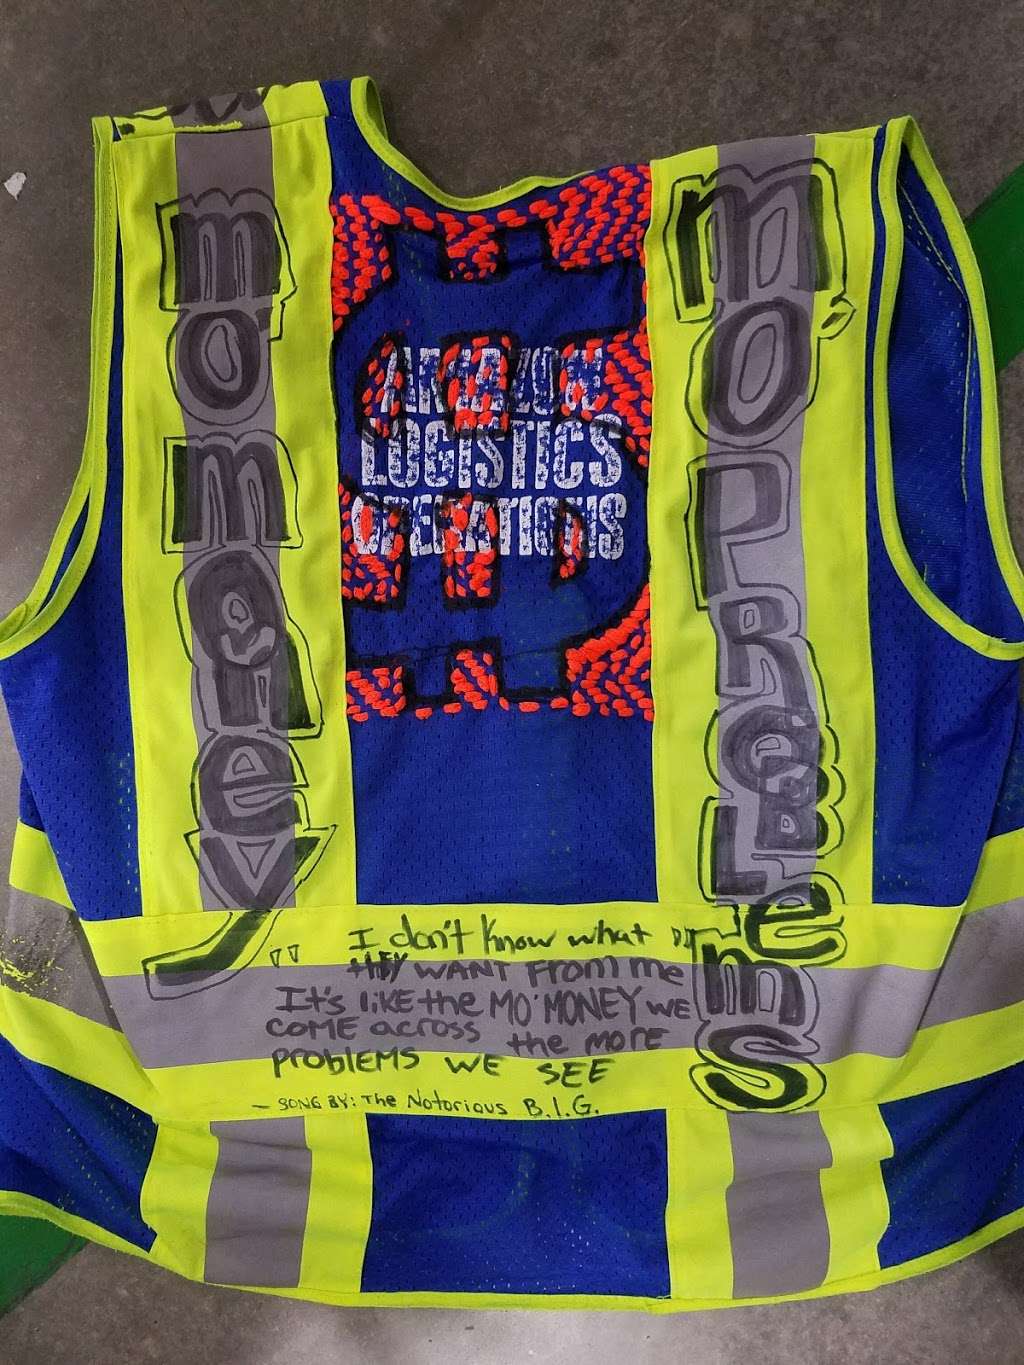 mo money
AMAZON
LOGISTICS
OPERATIONS
mo PRoBLems
" I don't know what "
tHEY WANT FROM me
It's liKE the MO'MONEY WE
COME across the more
problEMS WE SEE
– SONG BY: The Notorious B.I.G.